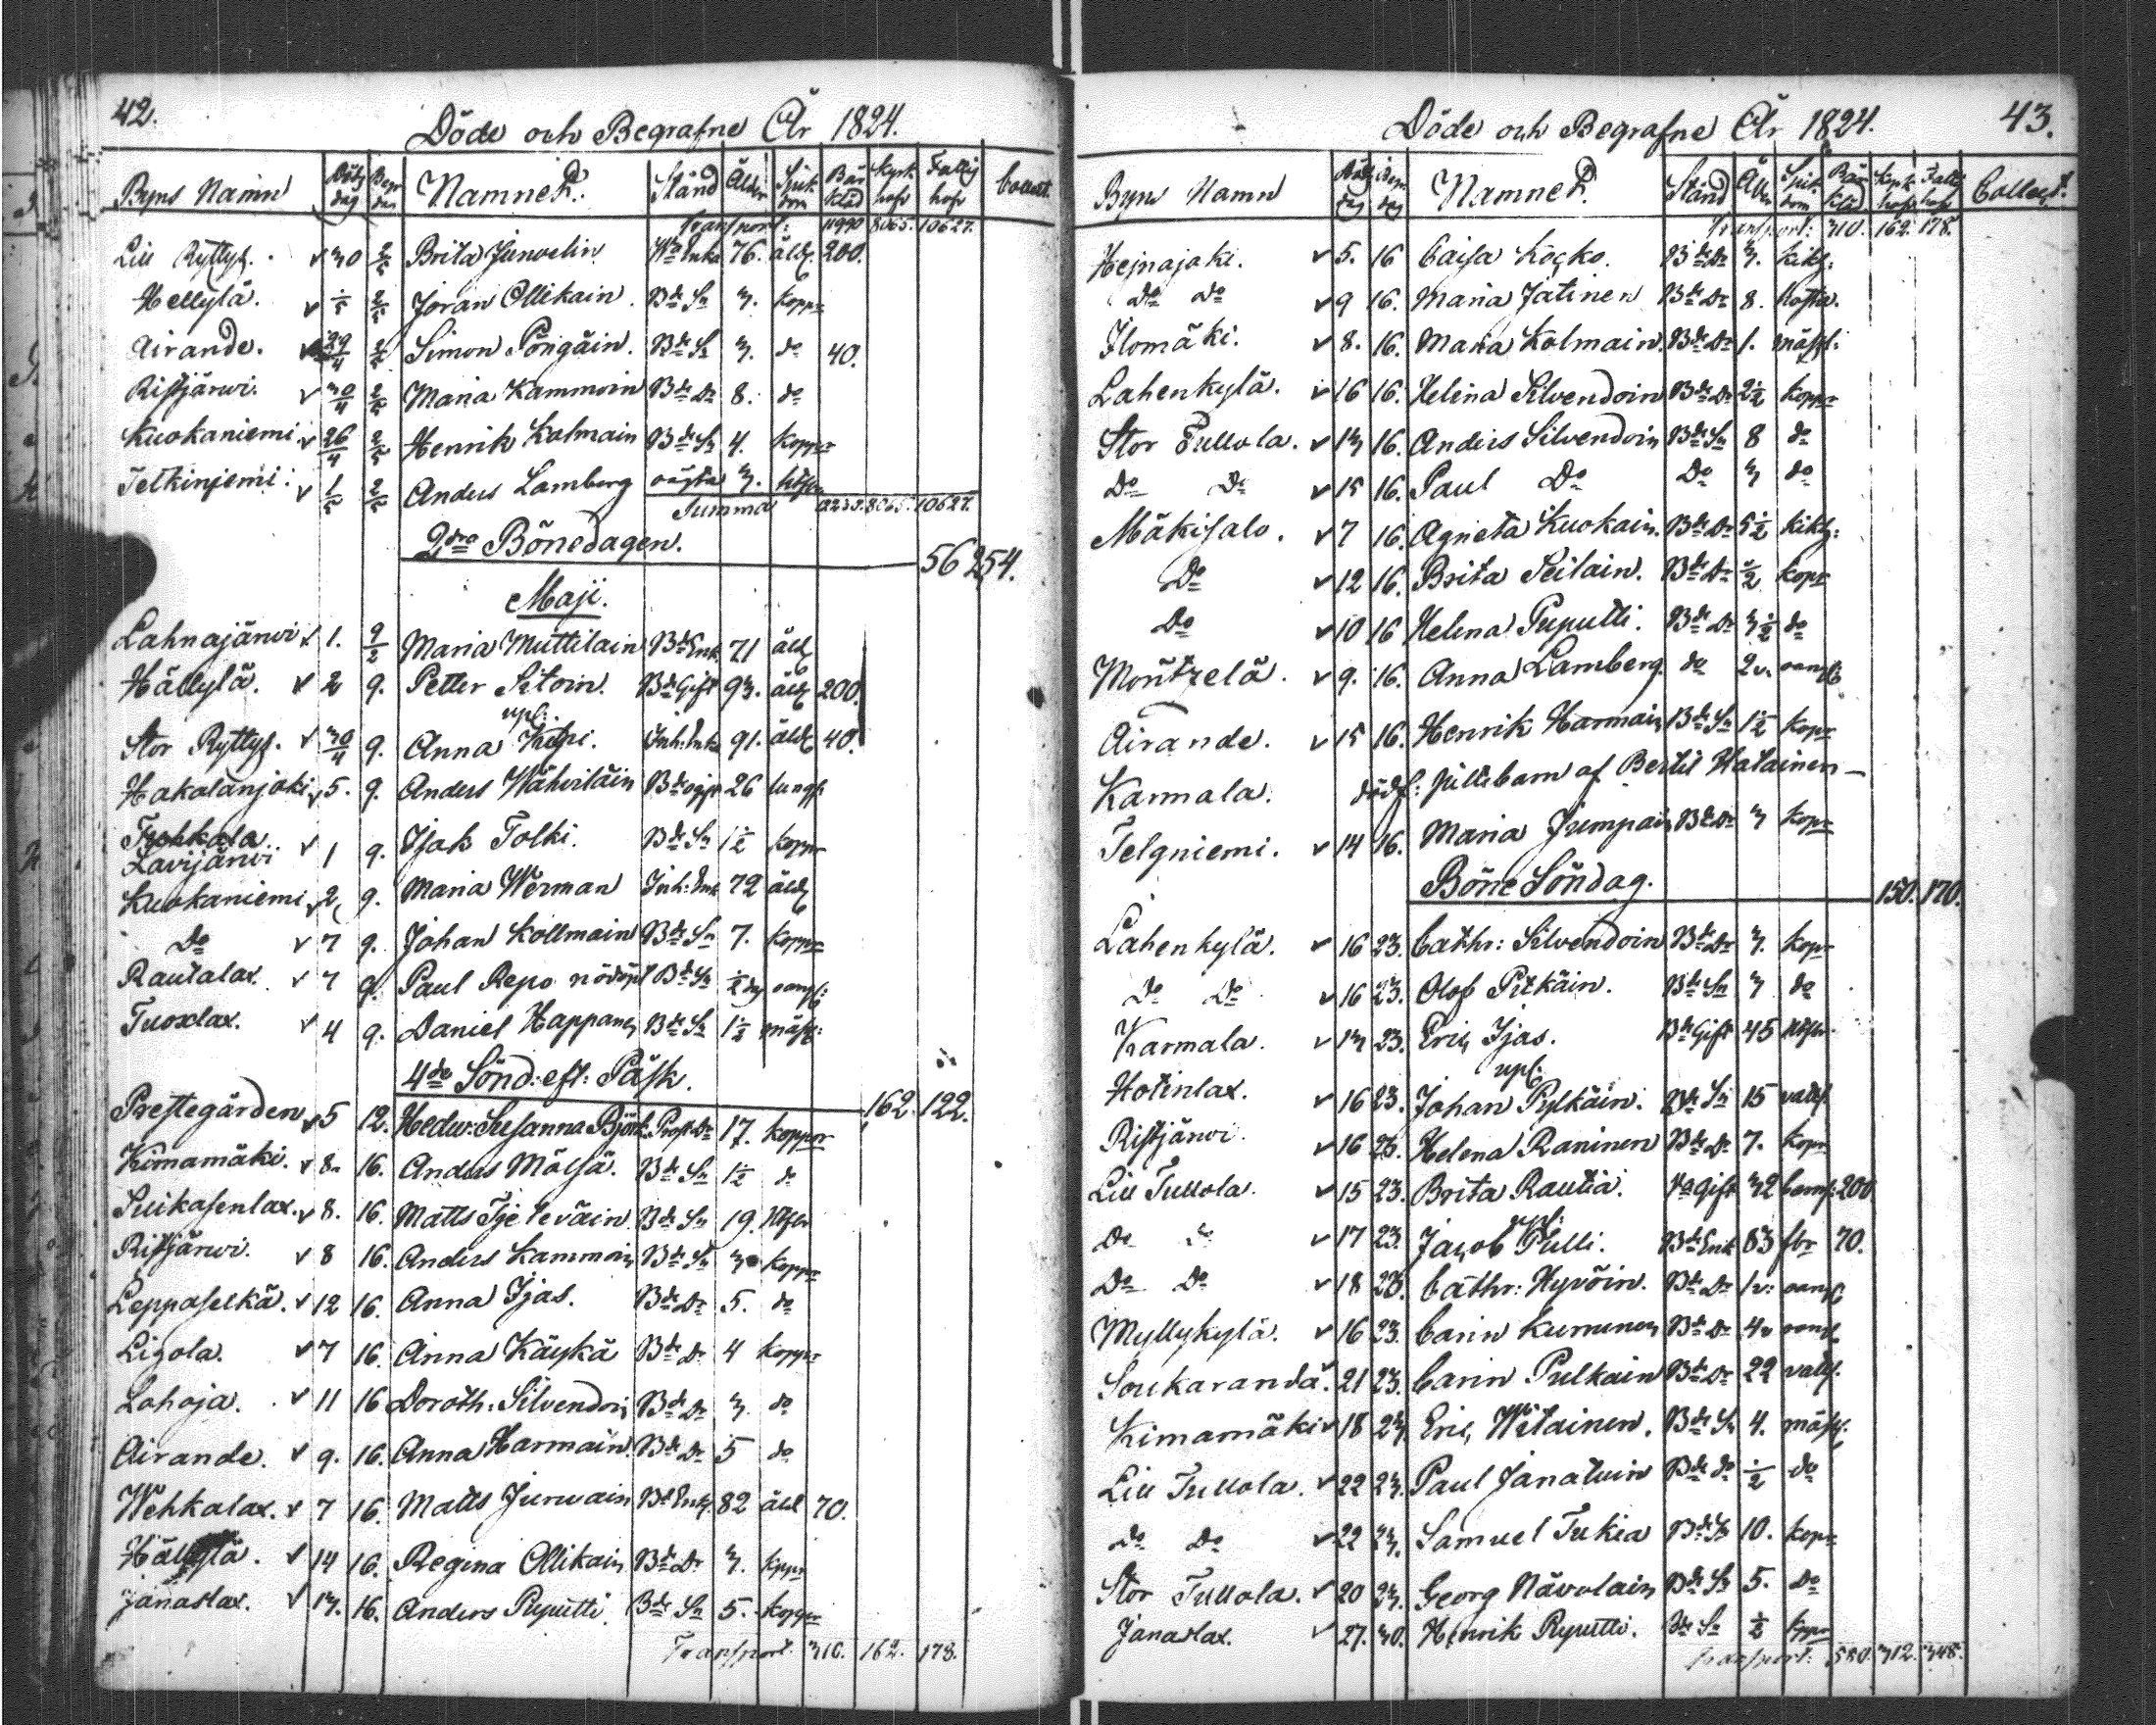 42.
Döde och Begrafne År 1824.
Byns Namn Döds dag Begr dag Namnet. Stånd Ålder Sjuk dom Bår kläd Kyrk hofv Fattig hofv Collect.
Transport: 8065. 10627.
Lill Ryttyf. 30 2/5 Brita Junvelin Enka 76. åld. 200.
Hellylä. 1/5 2/5 Jöran Ollikain. Bde Sn 3. koppr
Airande. 29/4 2/5 Simon Pöngäin. Bde Sn 3. do 40.
Ristjärwi. 30/4 2/5 Maria Kammoin Bde Dr 8. do
Kuokaniemi 26/4 2/5 Henrik Kolmain Bde Sn 4. koppr
Telkinjemi. 1/5 2/5 Anders Lamberg 3.
Summa 8065. 10627.
2dra Bönedagen.
56 254.
Maji.
Lahnajärwi 1. 9/2 Maria Muttilain Bde Enk. 71 åld.
Hällylä. 2 9. Petter Sitoin. Bde Gift 93. åld 200.
Stor Ryttyf. 30/4 9. Anna Kitpi. Inh: Enka 91. åld 40.
Hakalanjoki 5. 9. Anders Wähviläin Bde ogift 26 lungs.
Tuhkala
Lavijärwi 1 9. Isak Tolki. Bde Sn 1 1/2 koppr
Kuokaniemi 2. 9. Maria Werman Inh: Enk 72 åld
Do 7 9. Johan Kollmain Bde Sn 7. koppr
Rautalax. 7 9. Paul Repo nödöpt Bde Sn 1/2 dag oangf:
Tuoxlax. 4 9. Daniel Happanen Bde Sn 1 1/2 mässl:
4de Sönd: eft: Påsk.
162. 122.
Prestegården 5 12. Hedw: Susanna Björk Prost Dr 17. koppor
Kimamäki. 8. 16. Anders Mölsä. Bde Sn 1 1/2 do
Suikasenlax. 8. 16. Matts Tjeleväin Bde Sn 19.
Ristjärwi. 8 16. Anders Kammoin Bde Sn 3 koppr
Leppaselkä. 12 16. Anna Ijas. Bde Dr 5. do
Ligola. 7 16. Anna Käykä Bde Dr 4 koppr
Lohoja. 11 16 Doroth: Silvendoin Bde Dr 3. do
Airande. 9. 16. Anna Harmain Bde Dr 5 do
Wehkalax. 7 16. Matts Jurvain Bde Enk. 82 åld 70.
Hällylä. 14 16. Regina Ollikain Bde Dr 3. koppr
Janaslax. 13. 16. Anders Puputti Bde Sn 5. koppr
Transport. 310. 162. 178.
43.
Döde och Begrafne År 1824.
Byns Namn Döds dag Begr. dag Namnet. Stånd Ålder Sjuk dom Bår kläd Kyrk hofv Fatti hofv Collect.
Transport: 310. 162. 178.
Hejnajoki. 5. 16 Caisa Kocko. Bde Dr 3. kikh:
Do Do 9 16. Maria Jatinen Bde Dr 8. hosta.
Ilomäki. 8. 16. Maria Kolmain. Bde Dr 1. mässl:
Lahenkylä. 16 16. Helena Silvendoin Bde Dr 2 1/2 koppr
Stor Tullola. 13 16. Anders Silvendoin Bde Sn 8 do
Do Do 15 16. Paul Do Do 3 do
Mäkisalo. 7 16. Agneta Kuokain. Bde Dr 5 1/2 kikh:
Do 12 16. Brita Seilain. Bde Dr 1/2 kopr
Do 10 16 Helena Puputti. Bde Dr 3 1/2 do
Möntzelä. 9. 16. Anna Lamberg. do 2v. oangf
Airande. 15 16. Henrik Harmain Bde Sn 1 1/2 kopr
Karmala. dödf: piltebarn af Bertil Hatainen—
Telgniemi. 14 16. Maria Jumpain Bde Dr 3 kopr
Böne Söndag.
150. 170.
Lahenkylä. 16 23. Cathr: Silvendoin Bde Dr 3. kopr
Do Do 16 23. Olof Pitkäin. Bde Sn 3 do
Karmala. 13 23. Eric Ijas. Bde Gift 45
Hotinlax. 16 23. Johan Pylkäin. Bde Sn 15
Ristjärwi. 16 23. Helena Raninen Bde Dr 7. kopr
Lill Tullola. 15 23. Brita Rautia. gift 32 barns: 200
Do Do 17 23. Jacob Pulli. Bde Enk 83 70.
Do Do 18 23. Cathr: Hyvöin. Bde Dr 1v: oangf
Myllykylä. 16 23. Carin Kurrunen Bde Dr 4v oangf
Soukaranda. 21 23. Carin Pulkain Bde Dr 22
Kimamäki 18 23. Eric Witainen. Bde Sn 4. mässl.
Lill Tullola. 22 23. Paul Janatuin Bde do 1/2 do
Do Do 22 23. Samuel Tukia Bde Sn 10. kopr
Stor Tullola. 20 23. Georg Nävolain Bde Sn 5. Do
Janaslax. 27. 30. Henrik Puputti. Bde Sn 1/2 koppr
Transport: 580. 312. 348.